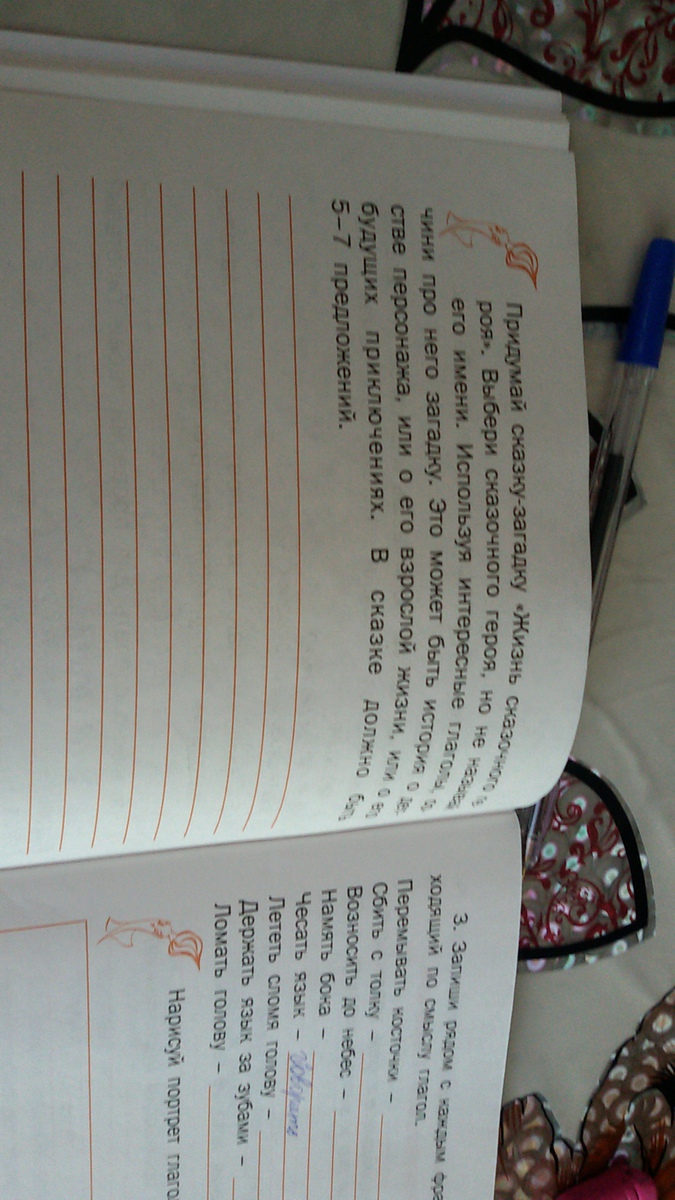 Придумай сказку-загадку «Жизнь сказочного
роя». Выбери сказочного героя, но не
его имени. Используя интересные глаголы,
чини про него загадку. Это может быть история о
стве персонажа, или о его взрослой жизни, или о
будущих приключениях. В сказке должно
5–7 предложений.
3. Запиши рядом с каждым
ходящий по смыслу глагол.
Перемывать косточки –
Сбить с толку –
Возносить до небес –
Намять бока –
Чесать язык –
Лететь сломя голову –
Держать язык за зубами –
Ломать голову –
Нарисуй портрет